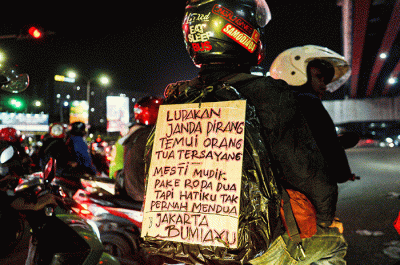 EAT
SLEEP
LUPAKAN
JANDA DIRANG
TEMUI ORANG
TUA TERSAYANG
MESTI MUDIK
PAKE RODA DUA
TAPI HATIKU TAK
PERNAH MENDUA
JAKARTA
BUMIAYU